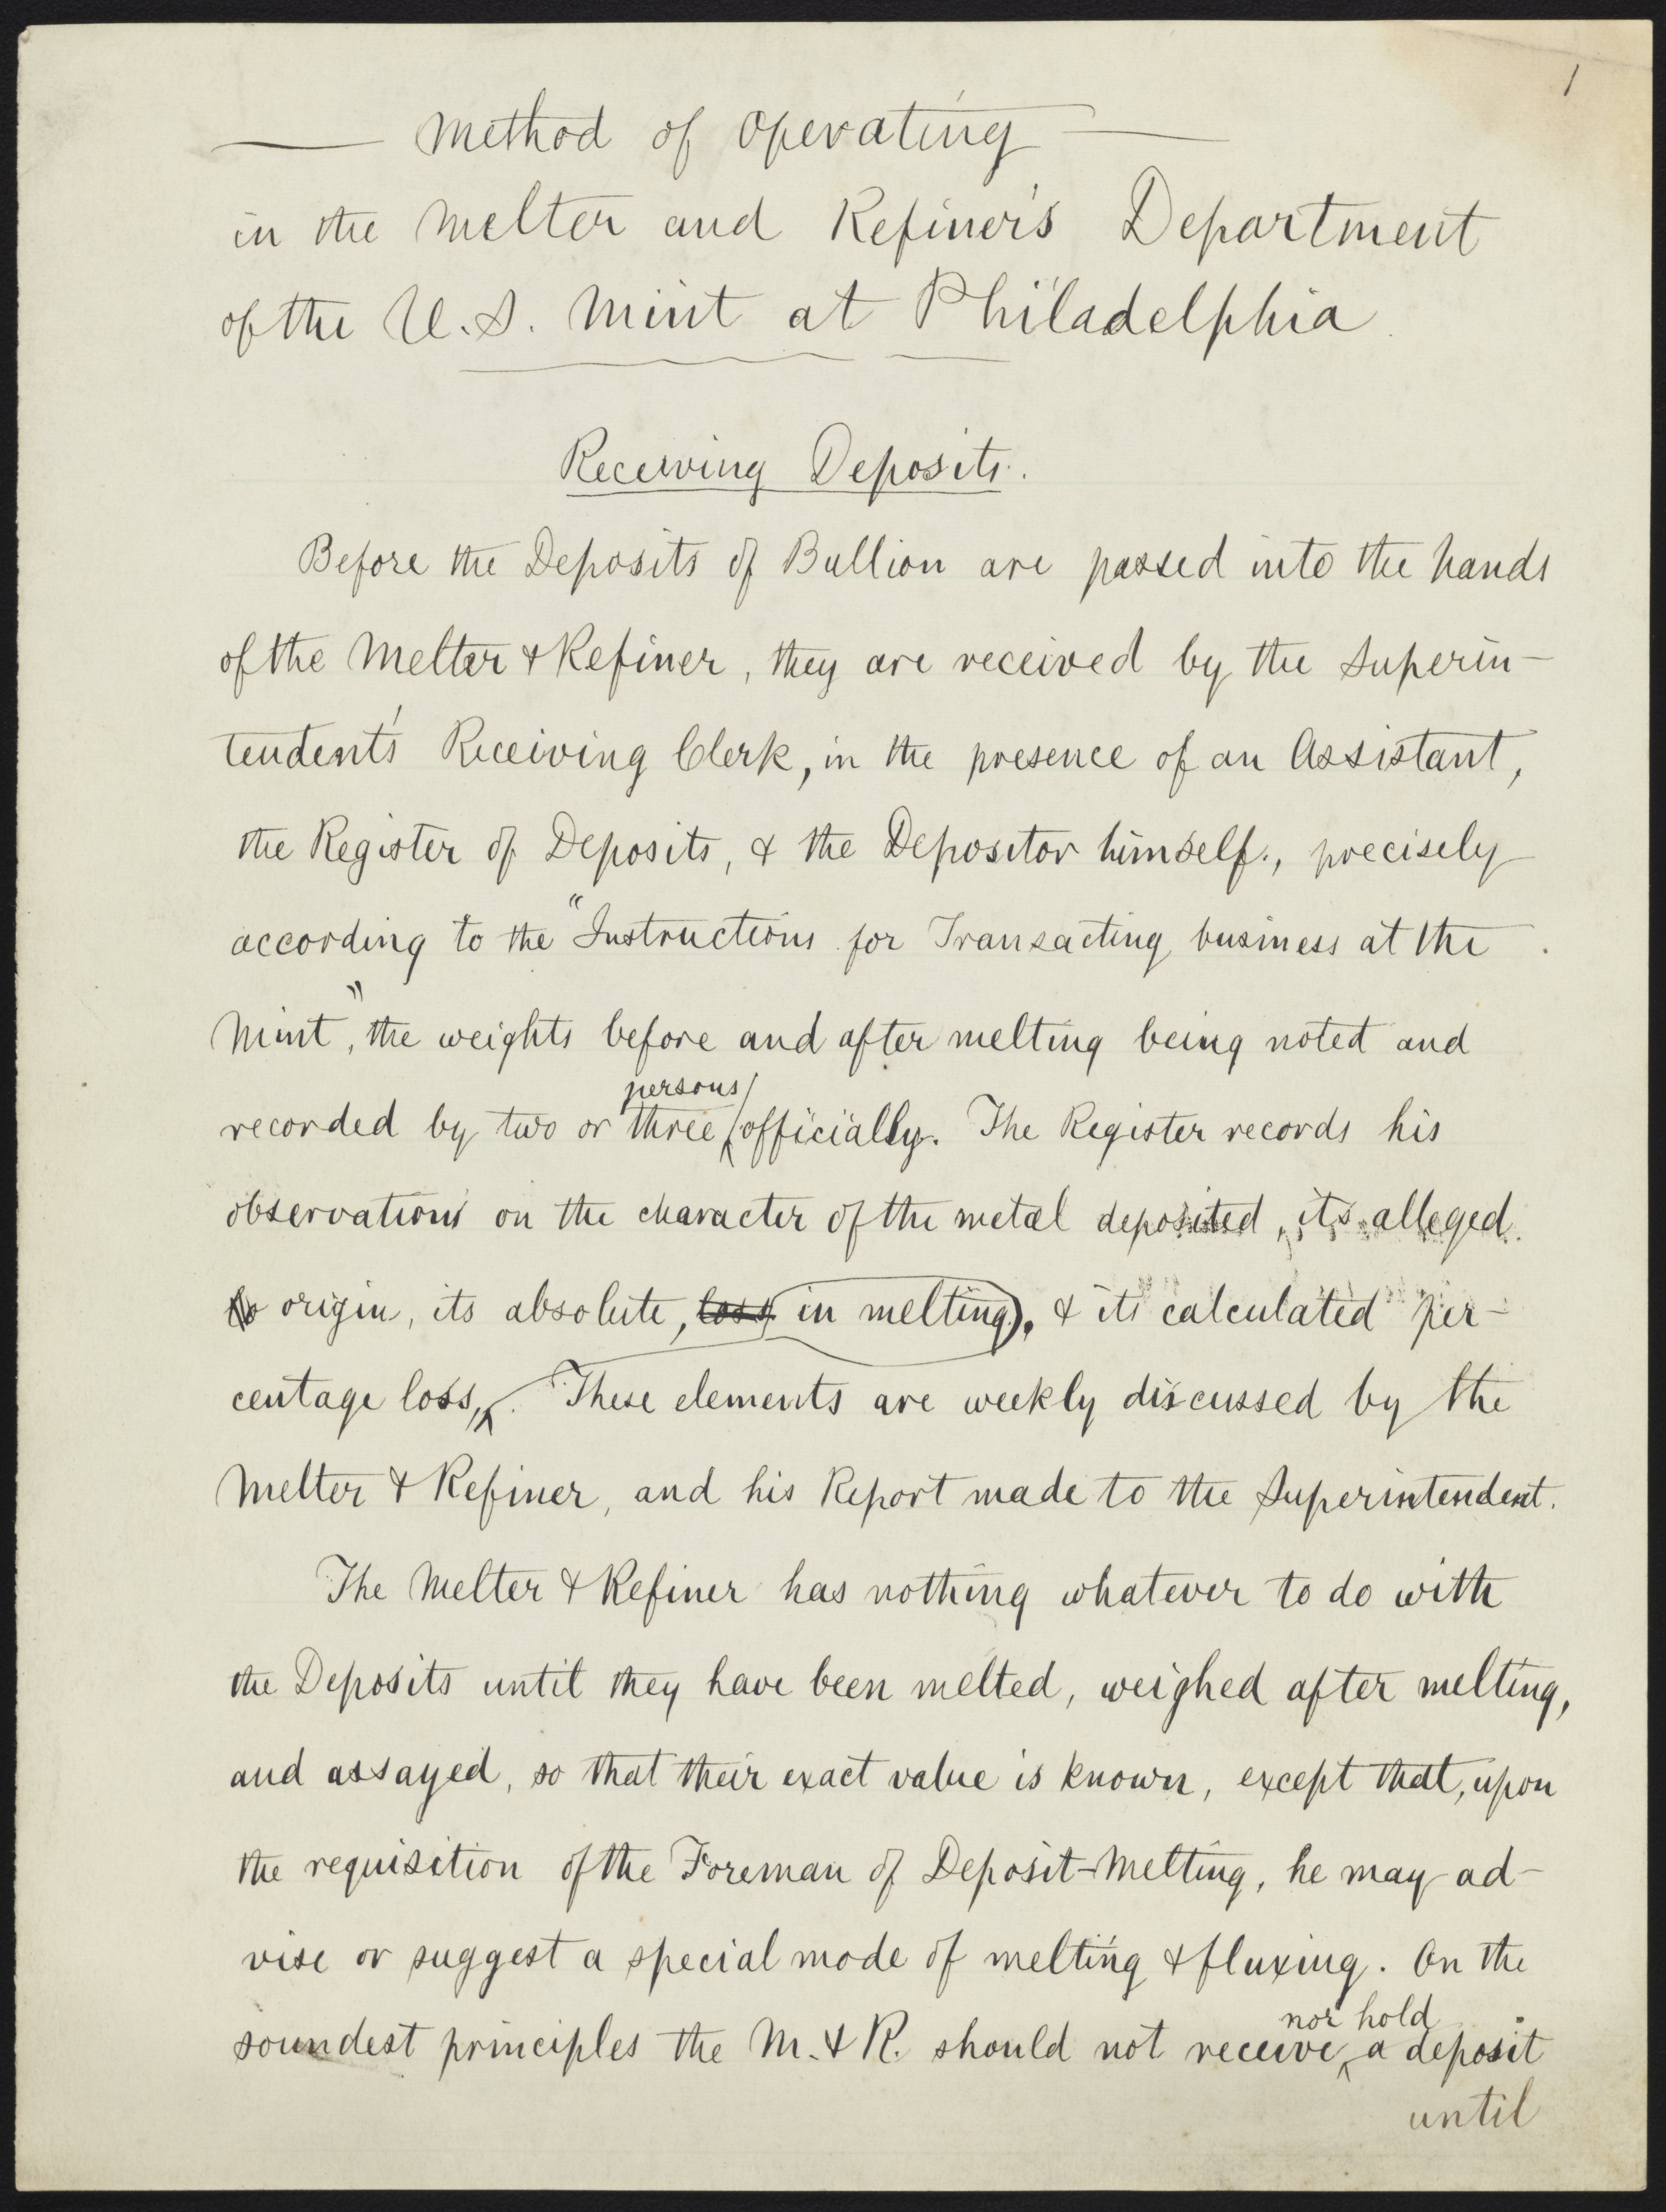 1
Method of Operating
in the Melter and Refiner's Department
of the U.S. Mint at Philadelphia.
Receiving Deposits.
Before the Deposits of Bullion are passed into the hands
of the Melter & Refiner, they are received by the Superin-
tendent's Receiving Clerk, in the presence of an Assistant,
the Register of Deposits, & the Depositor himself, precisely
according to the "Instructions for Transacting business at the
Mint", the weights before and after melting being noted and
persons
recorded by two or three officially. The Register records his
observations on the character of the metal deposited, its alleged
origin, its absolute, loss in melting, & its calculated per-
centage loss. These elements are weekly discussed by the
Melter & Refiner, and his Report made to the Superintendent.
The Melter & Refiner has nothing whatever to do with
the Deposits until they have been melted, weighed after melting,
and assayed, so that their exact value is known, except that, upon
the requisition of the Foreman of Deposit-Melting, he may ad-
vise or suggest a special mode of melting & fluxing. On the
nor hold
soundest principles the M. & R. should not receive a deposit
until